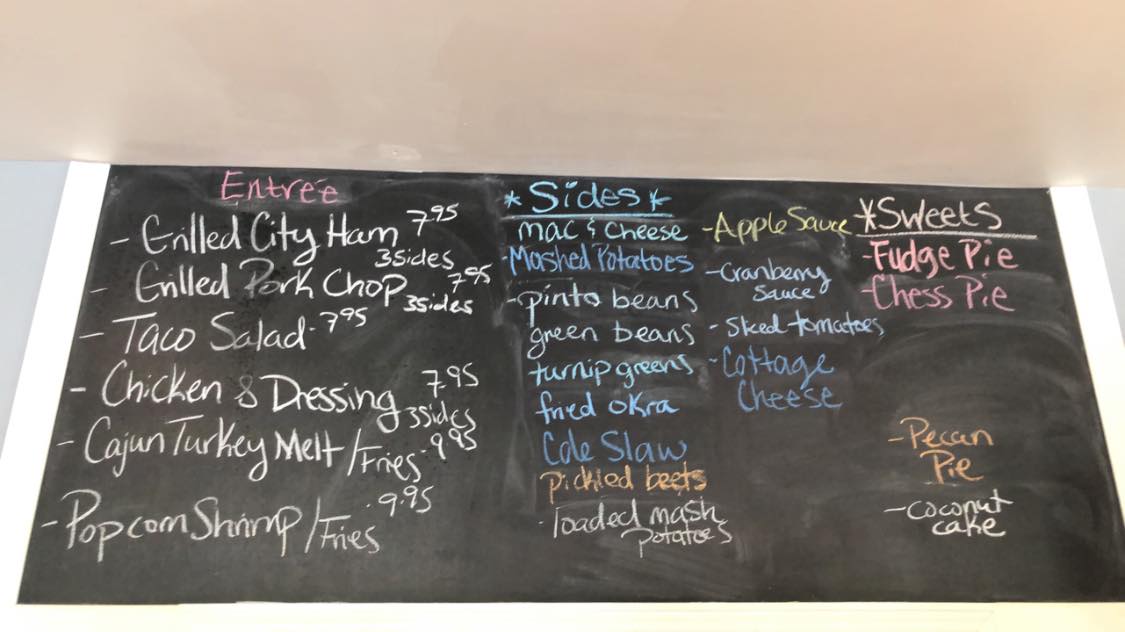 Entrée
- Grilled City Ham 7.95
3 Sides
- Grilled Pork Chop 7.95
3 sides
- Taco Salad - 7.95
- Chicken & Dressing 7.95
3 sides
- Cajun Turkey Melt / Fries - 9.95
- Popcorn Shrimp / Fries - 9.95
* Sides *
mac & cheese
- Mashed Potatoes
- pinto beans
green beans
turnip greens
fried okra
Cole Slaw
pickled beets
- loaded mash
potatoes
- Apple Sauce
- Cranberry
Sauce
- Sliced tomatoes
- Cottage
Cheese
* Sweets
- Fudge Pie
- Chess Pie
- Pecan
Pie
- coconut
cake